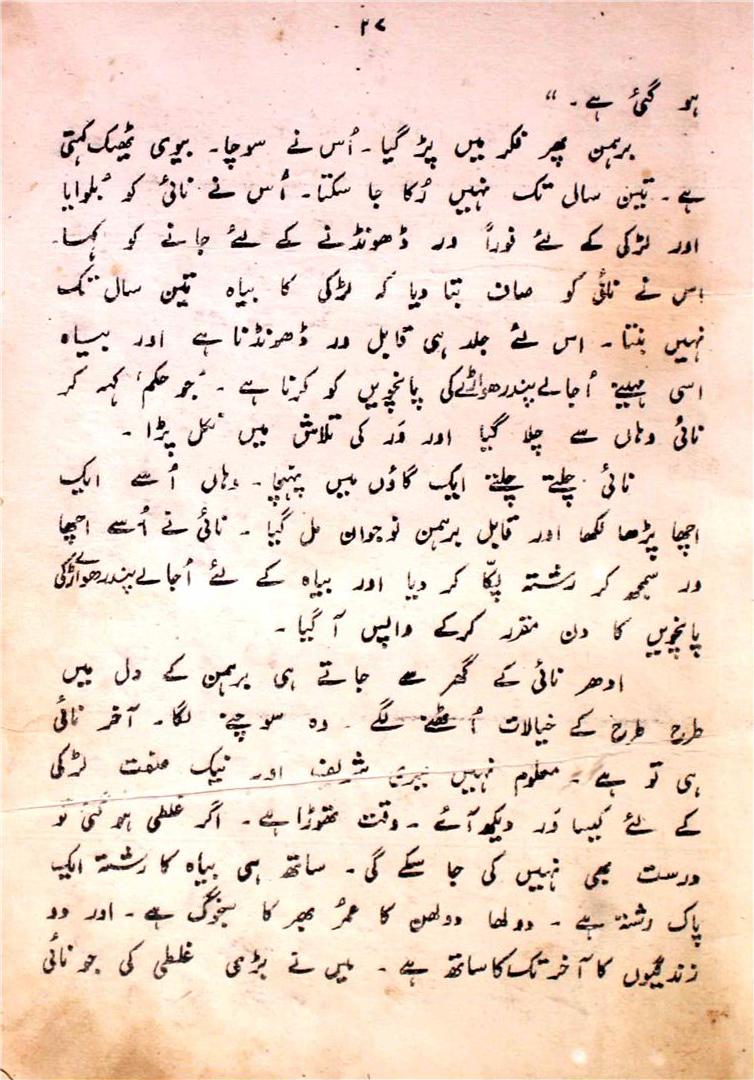 ۲۷
ہو گئی ہے۔"
برہمن پھر فکر میں پڑ گیا۔ اُس نے سوچا۔ بیوی ٹھیک کہتی
ہے۔ تین سال تک نہیں رُکا جا سکتا۔ اُس نے نائی کو بُلوایا
اور لڑکی کے لئے فوراً ور ڈھونڈنے کے لئے جانے کو کہا۔
اس نے نائی کو صاف بتا دیا کہ لڑکی کا بیاہ تین سال تک
نہیں بنتا۔ اس لئے جلد ہی قابل ور ڈھونڈنا ہے اور بیاہ
اسی مہینے اُجالے پندرھواڑے کی پانچویں کو کرنا ہے۔ 'جو حکم' کہہ کر
نائی وہاں سے چلا گیا اور وَر کی تلاش میں نکل پڑا۔
نائی چلتے چلتے ایک گاؤں میں پہنچا۔ وہاں اُسے ایک
اچھا پڑھا لکھا اور قابل برہمن نوجوان مل گیا۔ نائی نے اُسے اچھا
ور سمجھ کر رشتہ پکّا کر دیا اور بیاہ کے لئے اُجالے پندرھواڑے کی
پانچویں کا دن مقرر کرکے واپس آ گیا۔
ادھر نائی کے گھر سے جاتے ہی برہمن کے دل میں
طرح طرح کے خیالات اُٹھنے لگے۔ وہ سوچنے لگا۔ آخر نائی
ہی تو ہے۔ معلوم نہیں میری شریف اور نیک صفت لڑکی
کے لئے کیسا وَر دیکھ آئے۔ وقت تھوڑا ہے۔ اگر غلطی ہو گئی تو
درست بھی نہیں کی جا سکے گی۔ ساتھ ہی بیاہ کا رشتہ ایک
پاک رشتہ ہے۔ دولھا دولھن کا عمرُ بھر کا سنجوگ ہے۔ اور دو
زندگیوں کا آخر تک کا ساتھ ہے۔ میں نے بڑی غلطی کی جو نائی